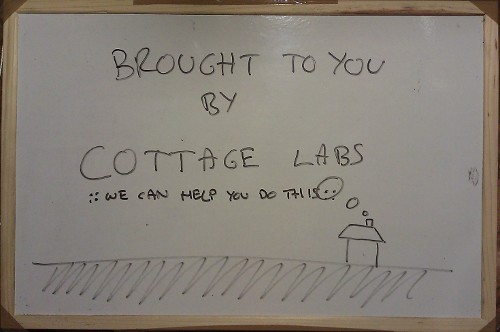 BROUGHT TO YOU
BY
COTTAGE LABS
:: WE CAN HELP YOU DO THIS ::